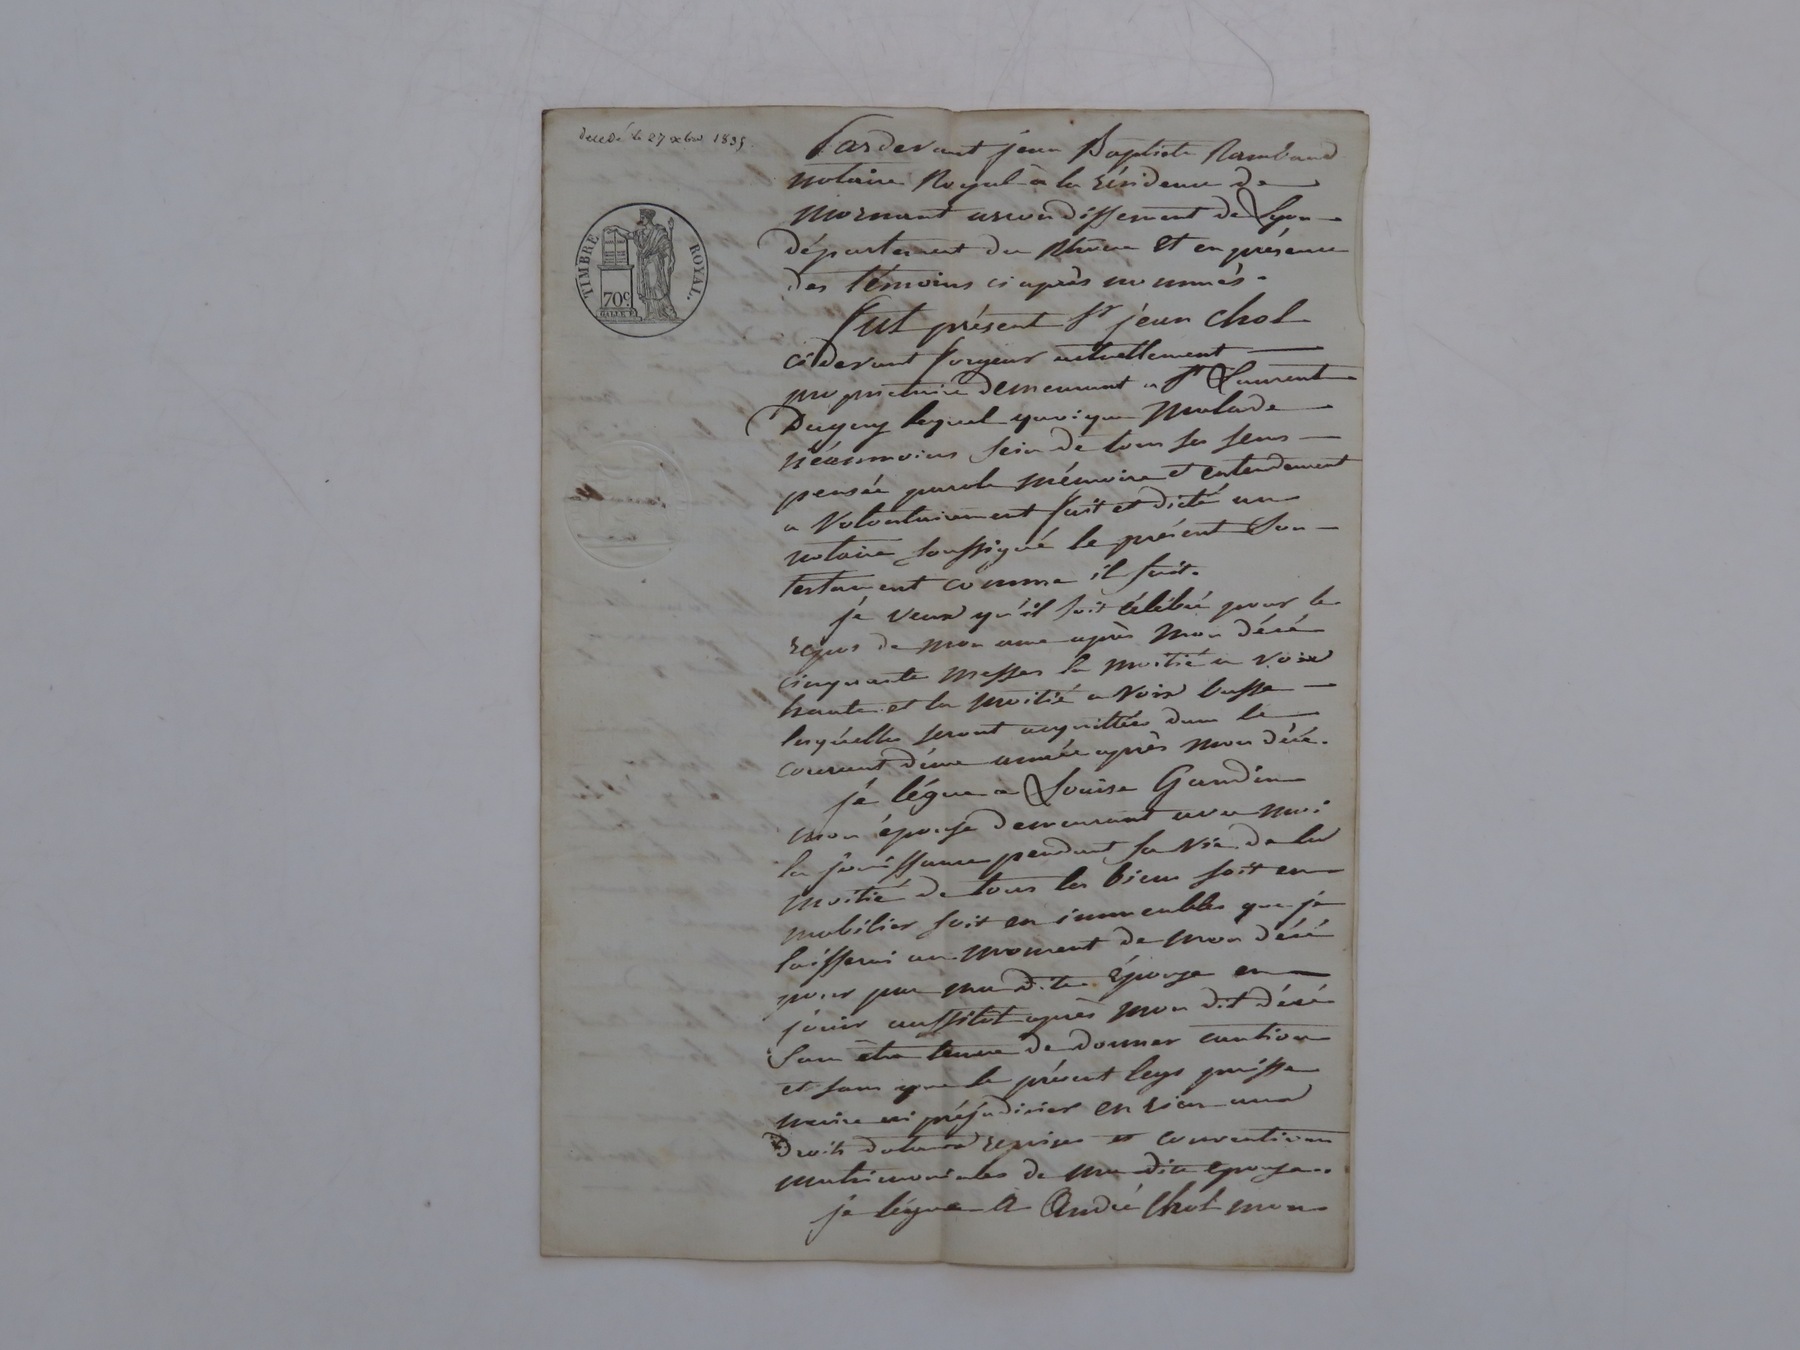 decedé le 27 xbre 1835
Pardevant jean Baptiste Rambaud
notaire Royal a la résidence de
mornant arrondissement de Lyon
département du Rhône et en présence
des témoins ci après nommés.
TIMBRE ROYAL.
70c
Fut présent Sr jean Chol
cidevant forgeur actuellement
propriétaire demeurant a St Laurent
Dagny lequel quoique malade
néanmoins sein de tous ses sens
pensée parole mémoire et entendement
a volontairement fait et dicté au
notaire soussigné le présent Son
testament comme il suit.
je veux qu'il soit célébré pour le
repos de mon ame après mon décé
cinquante messes la moitié a voix
haute et la moitié a voix basse
lesquelles seront acquittées dans le
courant d'une année après mon décé.
je légue a Louise Gandin
mon épouse demeurant avec moi
la jouissance pendant sa vie de la
moitié de tous les biens soit en
mobilier soit en immeubles que je
laisserai au moment de mon décé
pour par ma dite épouse en
jouir aussitot après mon dit décé
sans être tenue de donner caution
et sans que le présent legs puisse
nuire ni préjudicier en rien aux
droits dotaux reprises et conventions
matrimoniales de ma dite epouse.
je légue a André Chol mon